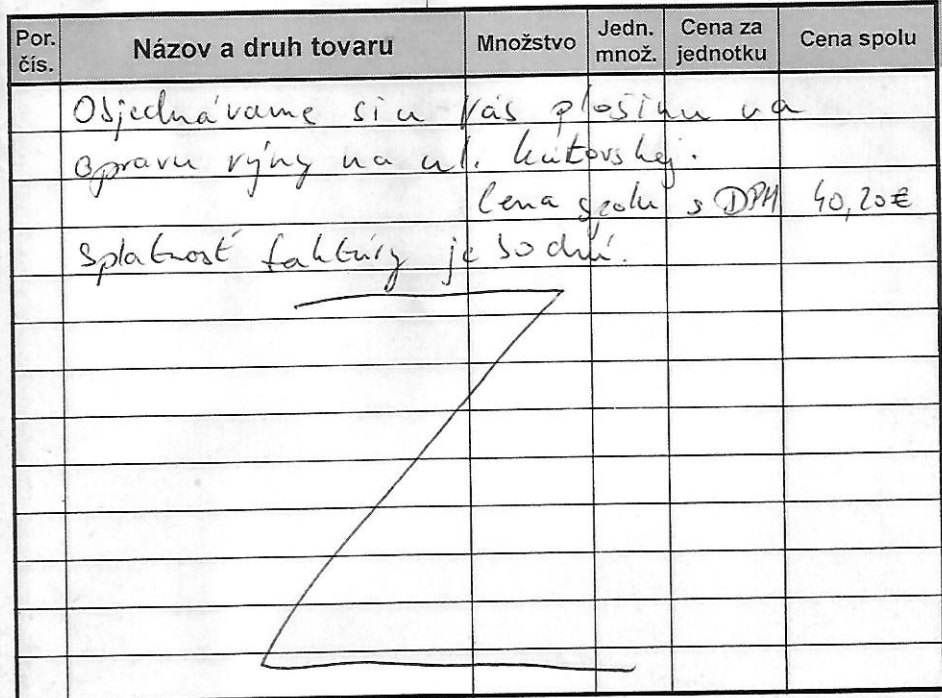 Por. čís. Názov a druh tovaru Množstvo Jedn. množ. Cena za jednotku Cena spolu
Objednávame si u Vás plošinu na
opravu rýny na ul.
Cena spolu s DPH 40,20€
Splatnosť faktúry je dní.